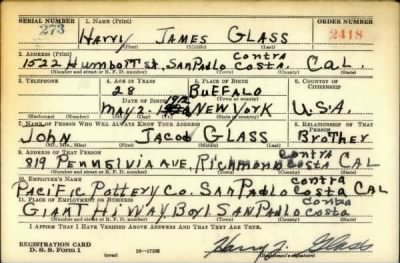 SERIAL NUMBER 1. NAME (Print) ORDER NUMBER
273 Harry JAMES GLASS 2418
(First) (Middle) (Last)
2. ADDRESS (Print)
1522 Humboltt st, SAN PABLO contra Costa. CAL.
(Number and street or R. F. D. number) (Town) (County) (State)
3. TELEPHONE 4. AGE IN YEARS 5. PLACE OF BIRTH 6. COUNTRY OF CITIZENSHIP
28 BUFFALO
DATE OF BIRTH (Town or county)
1912
MAY 2. NEW YORK U.S.A.
(Exchange) (Number) (Mo.) (Day) (Yr.) (State or country)
7. NAME OF PERSON WHO WILL ALWAYS KNOW YOUR ADDRESS 8. RELATIONSHIP OF THAT PERSON
JOHN JACOB GLASS BROTHER
(Mr., Mrs., Miss) (First) (Middle) (Last)
9. ADDRESS OF THAT PERSON
819 PENNSLVIA AVE, RICHMOND contra COSTA CAL
(Number and street or R. F. D. number) (Town) (County) (State)
10. EMPLOYER'S NAME
PACIFIC POTTERY CO. SAN PABLO contra COSTA CAL
11. PLACE OF EMPLOYMENT OR BUSINESS
GIANT HiWAY Boyl SAN PABLO contra costa
(Number and street or R. F. D. number) (Town) (County) (State)
I AFFIRM THAT I HAVE VERIFIED ABOVE ANSWERS AND THAT THEY ARE TRUE.
REGISTRATION CARD
D. S. S. Form 1 16—17105 Harry J. Glass
(Registrant's signature)